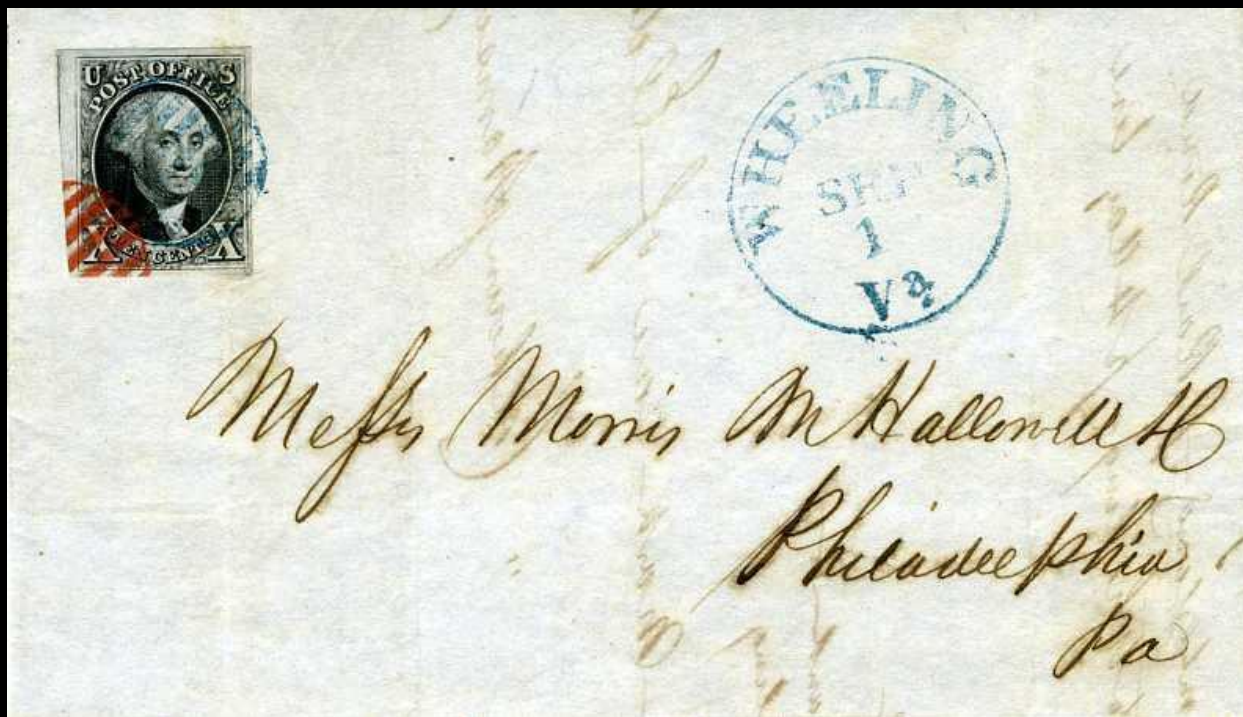 U S
POST OFFICE
X TEN CENTS X
WHEELING
SEP
1
Va
Messrs Morris M Hallowell &C
Philadelphia
Pa